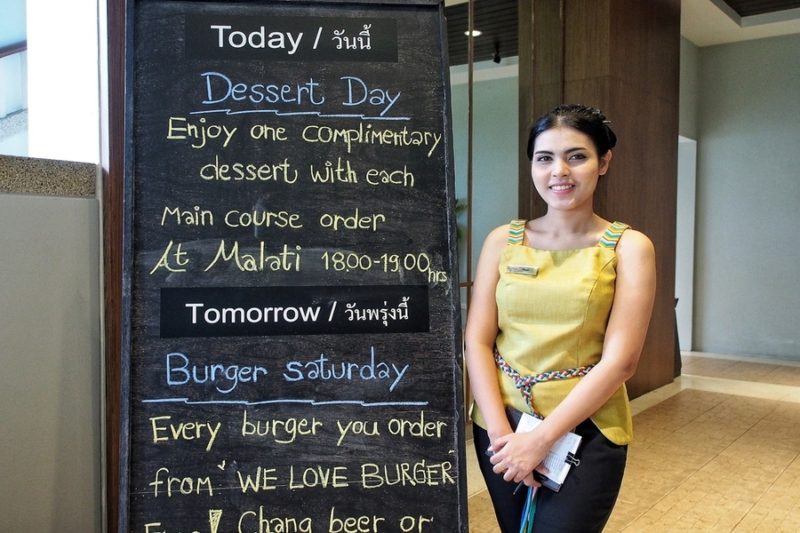 Today / วันนี้
Dessert Day
Enjoy one complimentary
dessert with each
Main course order
At Malati 18.00-19.00 hrs
Tomorrow / วันพรุ่งนี้
Burger saturday
Every burger you order
from "WE LOVE BURGER"
Free! Chang beer or